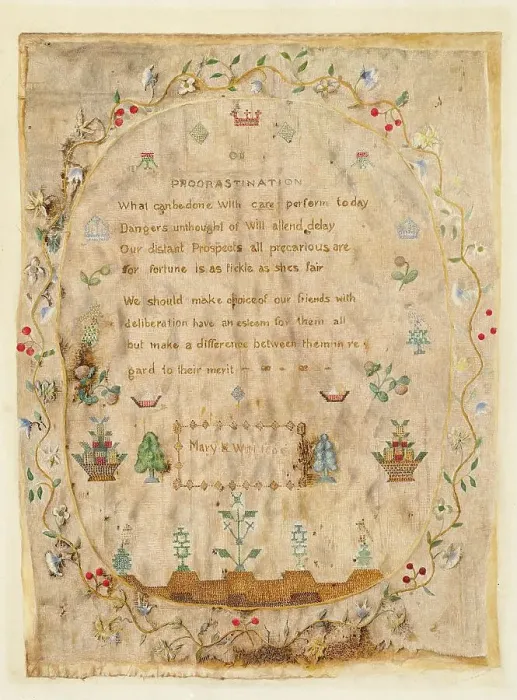 On
PROCRASTINATION
What canbedone With care perform today
Dangers unthought of Will attend delay
Our distant Prospects all precarious are
for fortune is as fickle as shes fair
We should make choice of our friends with
deliberation have an esteem for them all
but make a difference between them in re
gard to their merit
Mary K